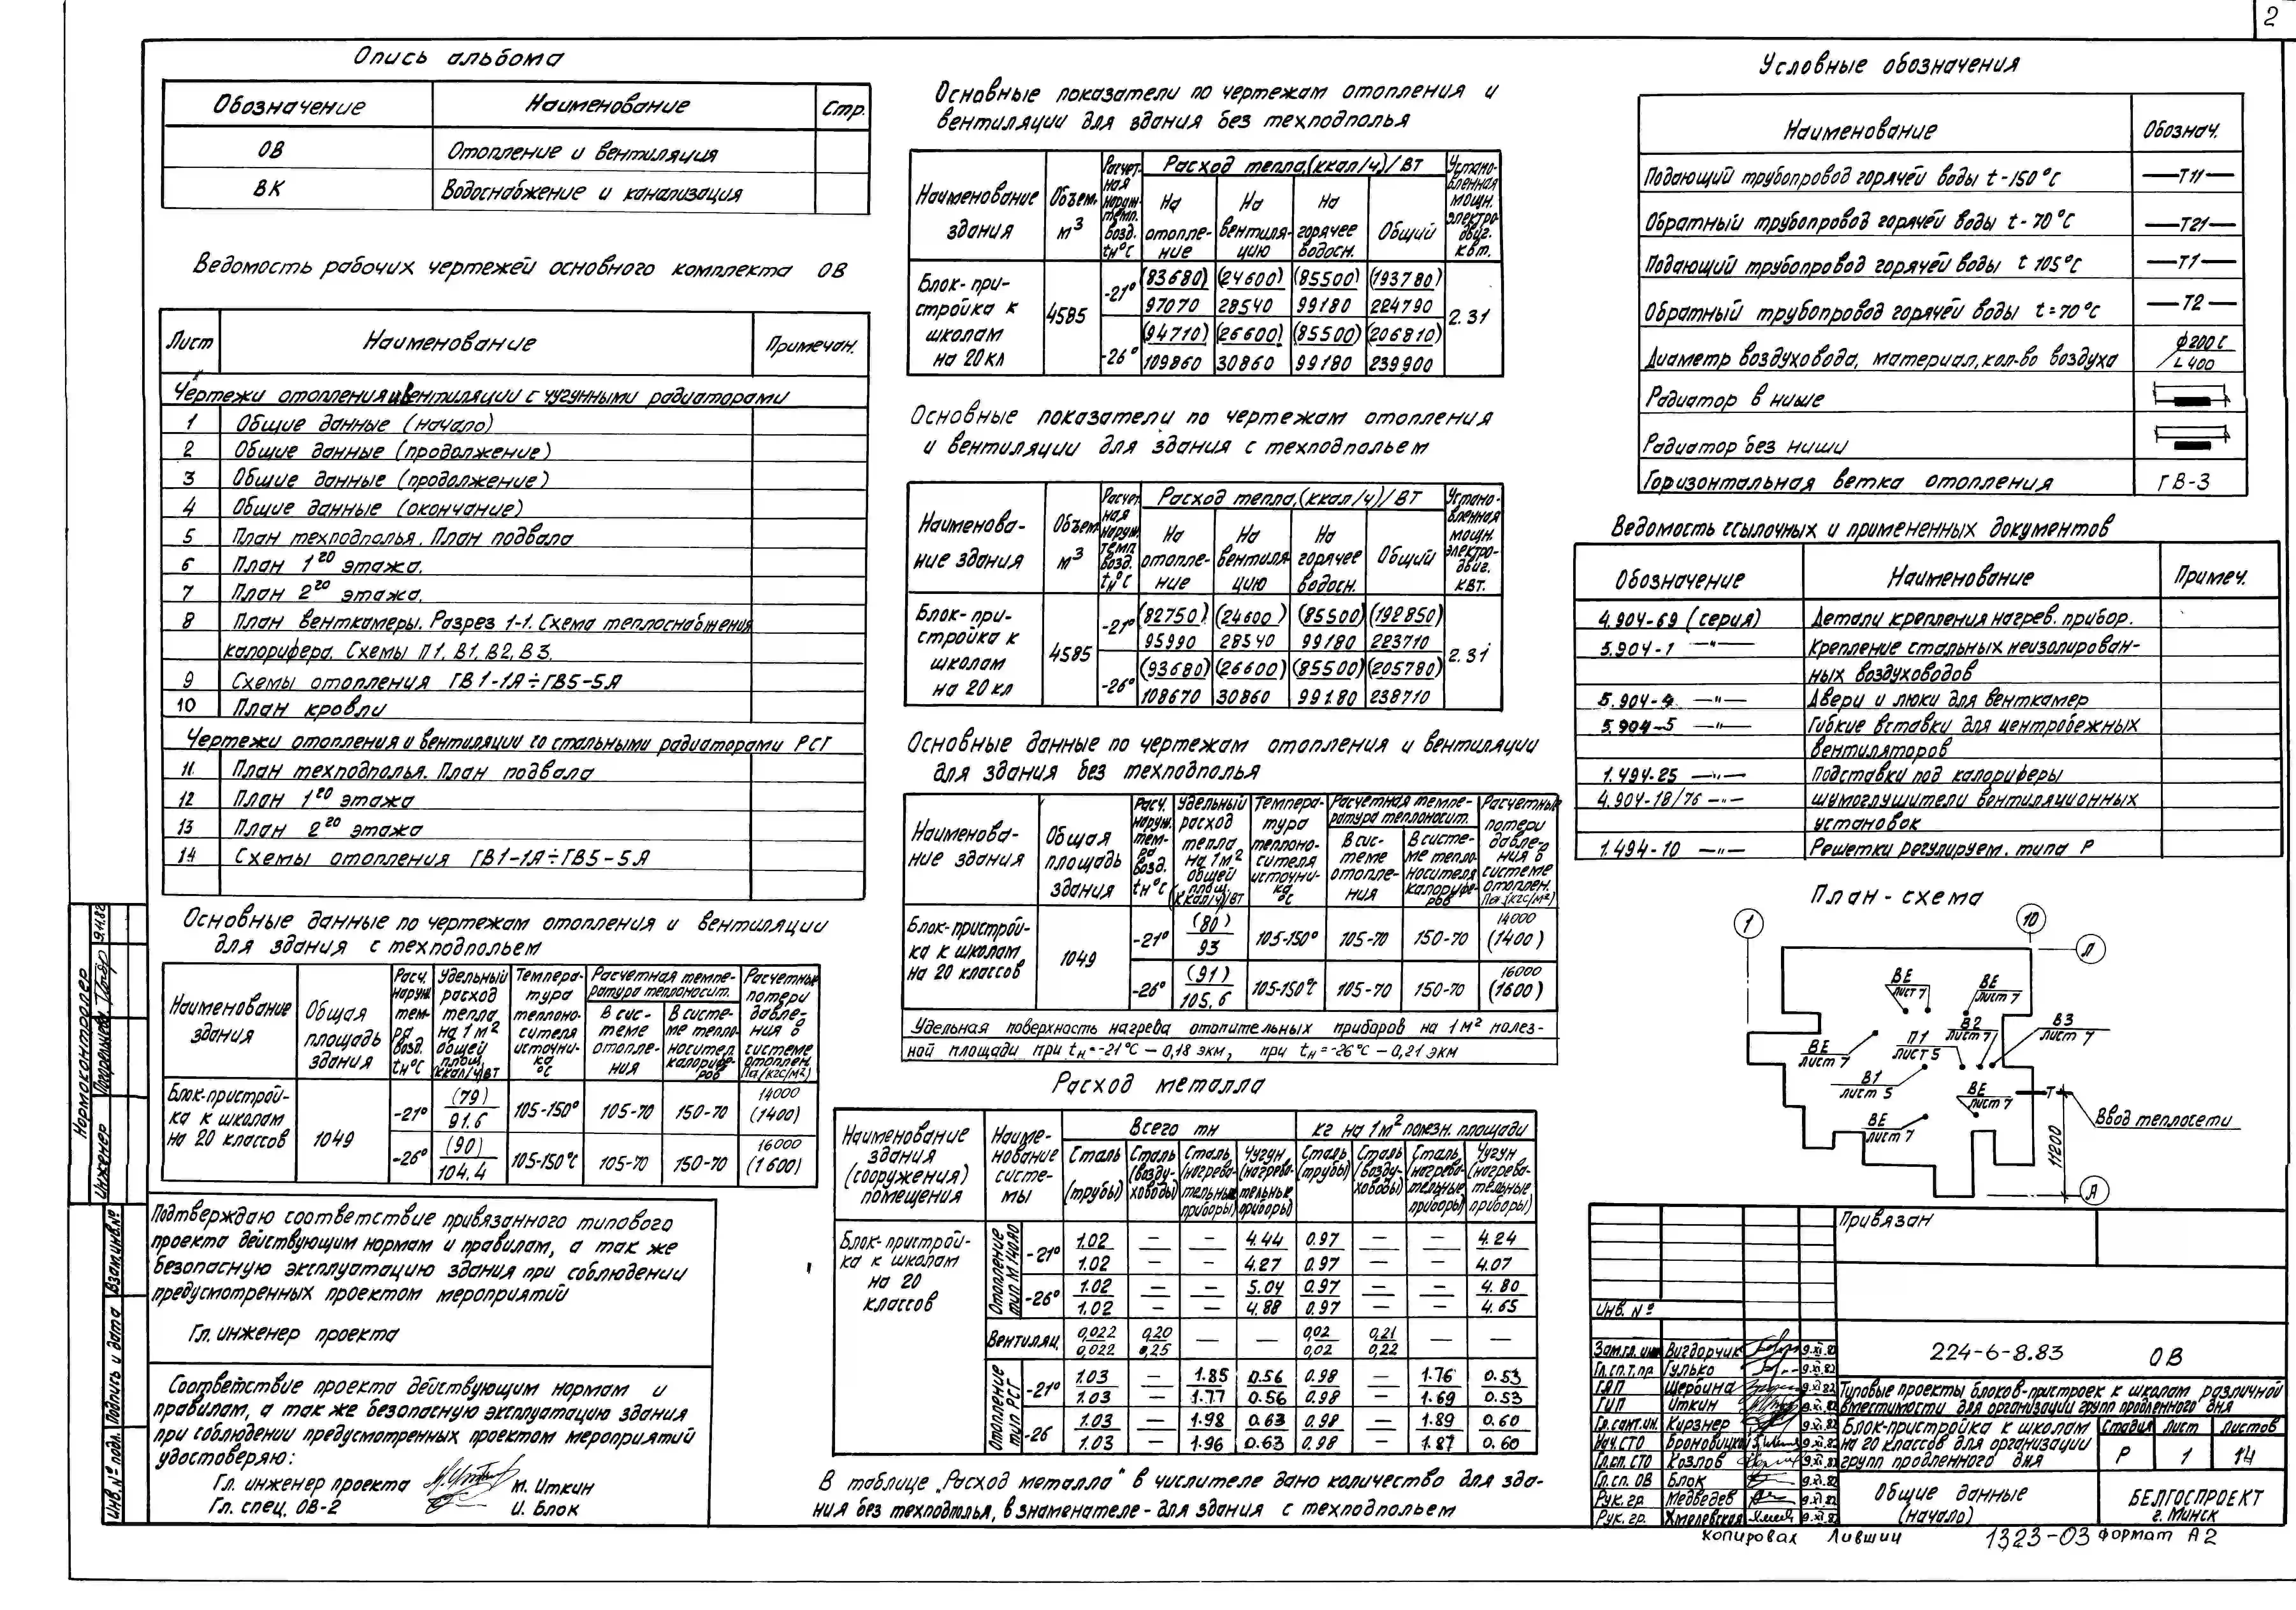 2
Опись альбома
Обозначение Наименование Стр.
ОВ Отопление и вентиляция
ВК Водоснабжение и канализация
Ведомость рабочих чертежей основного комплекта ОВ
Лист Наименование Примечан.
Чертежи отопления и вентиляции с чугунными радиаторами
1 Общие данные (начало)
2 Общие данные (продолжение)
3 Общие данные (продолжение)
4 Общие данные (окончание)
5 План техподполья. План подвала
6 План 1го этажа.
7 План 2го этажа.
8 План венткамеры. Разрез 1-1. Схема теплоснабжения
калорифера. Схемы П1, В1, В2, В3.
9 Схемы отопления ГВ1-1Я÷ГВ5-5Я
10 План кровли
Чертежи отопления и вентиляции со стальными радиаторами РСГ
11 План техподполья. План подвала
12 План 1го этажа
13 План 2го этажа
14 Схемы отопления ГВ1-1Я÷ГВ5-5Я
Основные данные по чертежам отопления и вентиляции
для здания с техподпольем
Наименование здания
Общая площадь здания
Расч. наруж. тем-ра возд. tн°С
Удельный расход тепла на 1м² общей площ. (ккал/ч)/вт
Температура теплоносителя источника °С
Расчетная температура теплоносит.
В системе отопления
В системе теплоносител. калориферов
Расчетные потери давления в системе отоплен. Па/(кгс/м²)
Блок-пристрой-
ка к школам
на 20 классов
1049
-21° (79) 91.6 105-150° 105-70 150-70 14000 (1400)
-26° (90) 104.4 105-150°С 105-70 150-70 16000 (1600)
Подтверждаю соответствие привязанного типового
проекта действующим нормам и правилам, а так же
безопасную эксплуатацию здания при соблюдении
предусмотренных проектом мероприятий
Гл. инженер проекта
Соответствие проекта действующим нормам и
правилам, а так же безопасную эксплуатацию здания
при соблюдении предусмотренных проектом мероприятий
удостоверяю:
Гл. инженер проекта М. Иткин
Гл. спец. ОВ-2 И. Блок
Нормоконтролер
Инженер
9.11.82
Взам.инв.№
Подпись и дата
Инв.№ подл.
Основные показатели по чертежам отопления и
вентиляции для здания без техподполья
Наименование здания
Объем. м³
Расчетная наруж. темп. возд. tн°С
Расход тепла,(ккал/ч)/ВТ
На отопление
На вентиляцию
На горячее водосн.
Общий
Установленная мощн. электродвиг. квт.
Блок-при-
стройка к
школам
на 20 кл
4585
-21° (83680) (24600) (85500) (193780)
97070 28540 99180 224790
2.31
-26° (94710) (26600) (85500) (206810)
109860 30860 99180 239900
Основные показатели по чертежам отопления
и вентиляции для здания с техподпольем
Наименова-
ние здания
Объем м³
Расчетная наруж. темп. возд. tн°С
Расход тепла,(ккал/ч)/ВТ
На отопление
На вентиляцию
На горячее водосн.
Общий
Установленная мощн. электродвиг. квт.
Блок-при-
стройка к
школам
на 20 кл
4585
-21° (82750) (24600) (85500) (192850)
95990 28540 99180 223710
2.31
-26° (93680) (26600) (85500) (205780)
108670 30860 99180 238710
Основные данные по чертежам отопления и вентиляции
для здания без техподполья
Наименова-
ние здания
Общая площадь здания
Расч. наруж. тем-ра возд. tн°С
Удельный расход тепла на 1м² общей площ. (ккал/ч)/вт
Температура теплоносителя источника °С
Расчетная температура теплоносит.
В системе отопления
В системе теплоносителя калориферов
Расчетные потери давления в системе отоплен. Па/(кгс/м²)
Блок-пристрой-
ка к школам
на 20 классов
1049
-21° (80) 93 105-150° 105-70 150-70 14000 (1400)
-26° (91) 105.6 105-150°С 105-70 150-70 16000 (1600)
Удельная поверхность нагрева отопительных приборов на 1м² полез-
ной площади при tн=-21°С – 0,18 экм, при tн=-26°С – 0,21 экм
Расход металла
Наименование здания (сооружения) помещения
Наименование системы
Всего тн
кг на 1м² полезн. площади
Сталь (трубы)
Сталь (воздуховоды)
Сталь (нагревательные приборы)
Чугун (нагревательные приборы)
Сталь (трубы)
Сталь (воздуховоды)
Сталь (нагревательные приборы)
Чугун (нагревательные приборы)
Блок-пристрой-
ка к школам
на 20
классов
Отопление тип М140АО
-21° 1.02 — — 4.44 0.97 — — 4.24
1.02 — — 4.27 0.97 — — 4.07
-26° 1.02 — — 5.04 0.97 — — 4.80
1.02 — — 4.88 0.97 — — 4.65
Вентиляц. 0,022 0,20 — — 0,02 0,21 — —
0,022 0,25 0,02 0,22
Отопление тип РСГ
-21° 1.03 — 1.85 0.56 0.98 — 1.76 0.53
1.03 — 1.77 0.56 0.98 — 1.69 0.53
-26 1.03 — 1.98 0.63 0.98 — 1.89 0.60
1.03 — 1.96 0.63 0.98 — 1.87 0.60
В таблице „Расход металла" в числителе дано количество для зда-
ния без техподполья, в знаменателе - для здания с техподпольем
Условные обозначения
Наименование Обознач.
Подающий трубопровод горячей воды t-150°С —Т11—
Обратный трубопровод горячей воды t-70°С —Т21—
Подающий трубопровод горячей воды t 105°С —Т1—
Обратный трубопровод горячей воды t=70°С —Т2—
Диаметр воздуховода, материал, кол-во воздуха ϕ200 С / L400
Радиатор в нише
Радиатор без ниши
Горизонтальная ветка отопления ГВ-3
Ведомость ссылочных и примененных документов
Обозначение Наименование Примеч.
4.904-69 (серия) Детали крепления нагрев. прибор.
5.904-1 —"— Крепление стальных неизолирован-
ных воздуховодов
5.904-4 —"— Двери и люки для венткамер
5.904-5 —"— Гибкие вставки для центробежных
вентиляторов
1.494-25 —"— Подставки под калориферы
4.904-18/76 —"— Шумоглушители вентиляционных
установок
1.494-10 —"— Решетки регулируем. типа Р
План-схема
1 10 Л
ВЕ лист 7
ВЕ лист 7
ВЕ лист 7
П1 лист 5
В2 лист 7
В3 лист 7
В1 лист 5
ВЕ лист 7
ВЕ лист 7
Т
Ввод теплосети
11200
А
Привязан
Инв. №
224-6-8.83 ОВ
Зам.гл. инж Вигдорчик 9.XI.82
Гл.сп.т.пр Гулько 9.XI.82
ГАП Щербина 9.XI.82
ГИП Иткин 9.XI.82
Гл.сант.ин. Кирзнер 9.XI.82
Нач.СТО Броновицкий 9.XI.82
Гл.сп. СТО Козлов 9.XI.82
Гл.сп. ОВ Блок 9.XI.82
Рук. гр. Медведев 9.XI.82
Рук. гр. Хмелевская 9.XI.82
Типовые проекты блоков-пристроек к школам различной
вместимости для организации групп продленного дня
Блок-пристройка к школам
на 20 классов для организации
групп продленного дня
Стадия Лист Листов
Р 1 14
Общие данные
(начало)
БЕЛГОСПРОЕКТ
г. Минск
Копировал Лившиц 1323-03 Формат А2